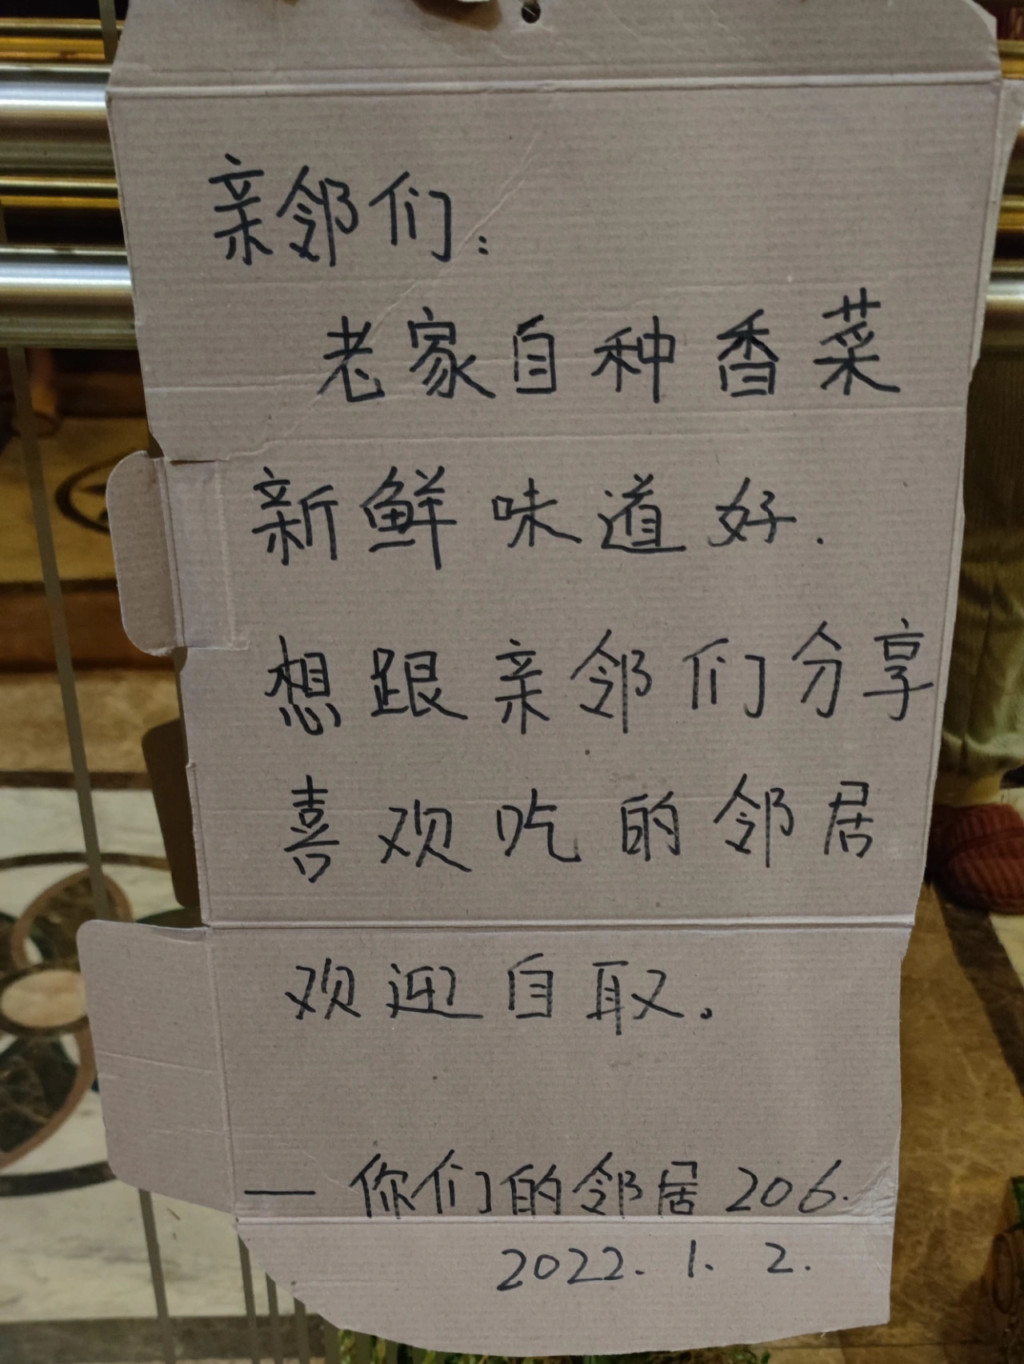 亲邻们：
老家自种香菜
新鲜味道好.
想跟亲邻们分享
喜欢吃的邻居
欢迎自取。
— 你们的邻居 206.
2022. 1. 2.